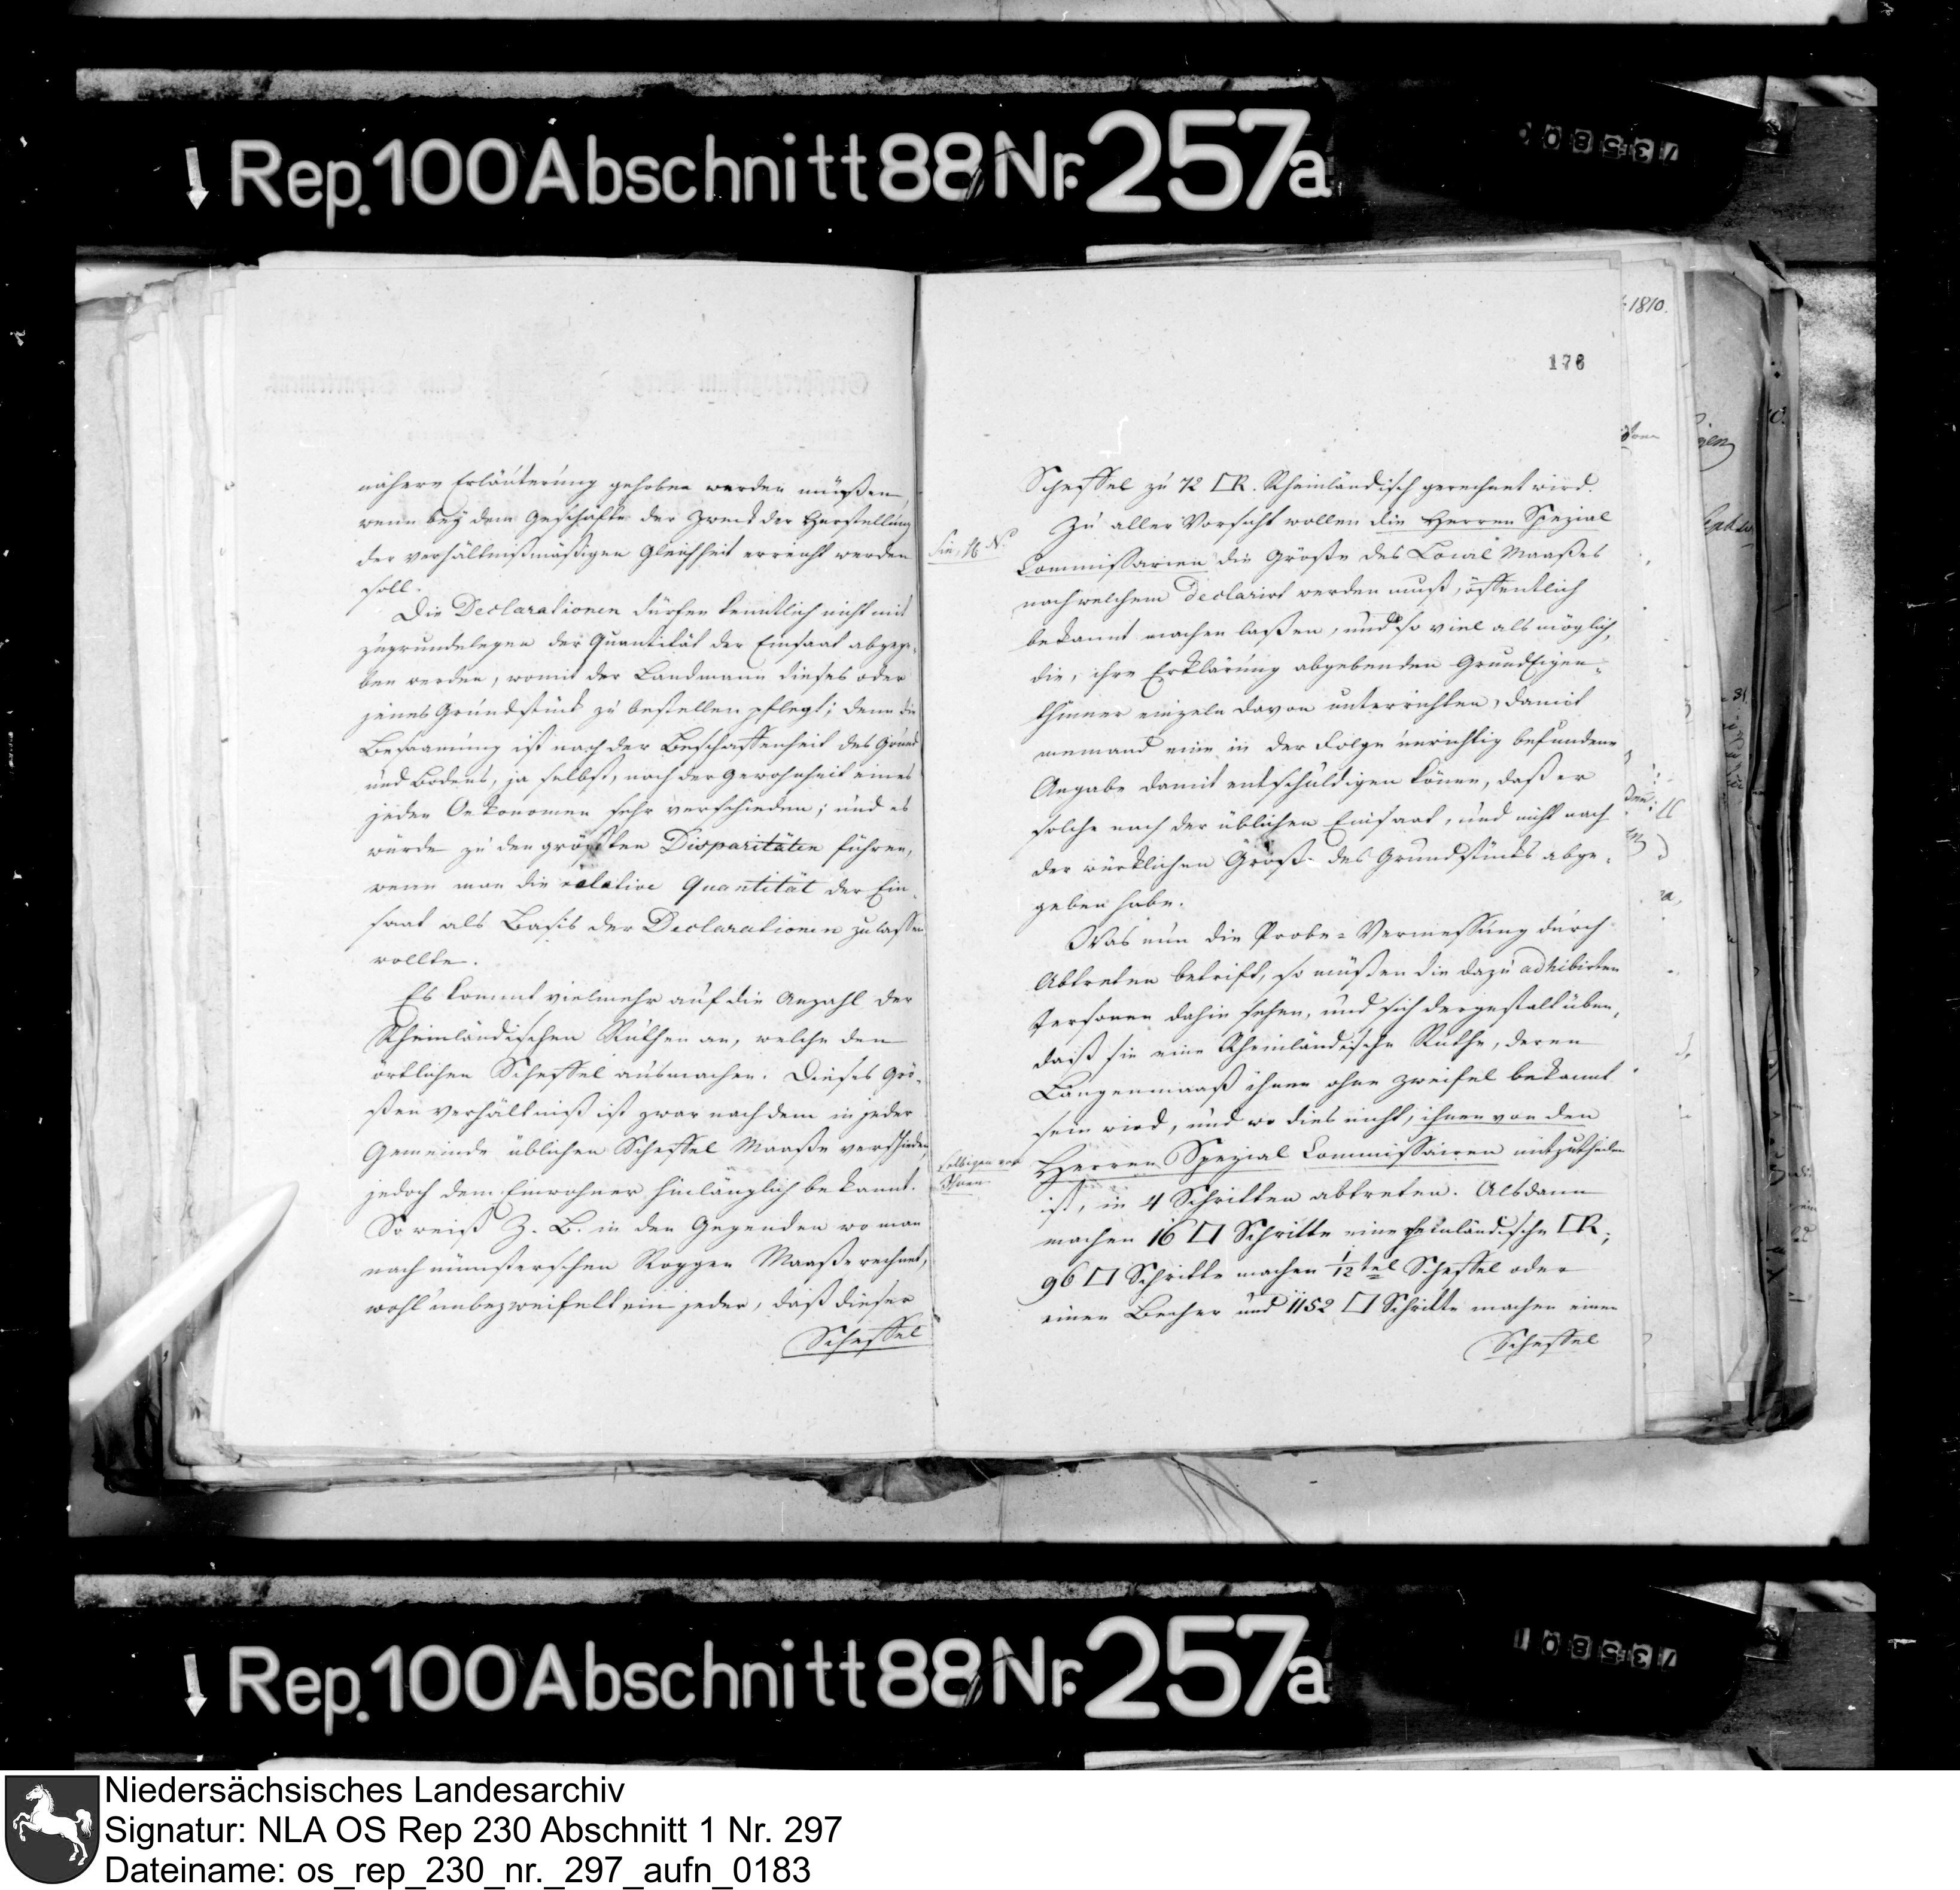 Rep. 100 Abschnitt 88 Nr. 257a
735800
1810.
176
nähere Erläuterung gehoben werden müßen,
wenn bey dem Geschäfte der Zweck der Herstellung
der verhältnißmäßigen Gleichheit erreicht werden
soll.
Die Declarationen dürfen keintlich nicht mit
zugrundelegen der Quantität der Einsaat abgege-
ben werden, womit der Landmann dieses oder
jenes Grundstück zu bestellen pflegt; denn die
Besaamung ist nach der Beschaffenheit des Grund
und Bodens, ja selbst, nach der Gewohnheit eines
jeden Oekonomen sehr verschieden; und es
würde zu den größten Disparitäten führen,
wenn man die relative Quantität der Ein-
saat als Basis der Declarationen zulassen
wollte.
Es kommt vielmehr auf die Anzahl der
Rheinländischen Ruthen an, welche den
örtlichen Scheffel ausmachen. Dieses Grö-
ßen verhältniß ist zwar nach dem in jeder
Gemeinde üblichen Scheffel Maaße verschieden,
jedoch dem Einwohner hinlänglich bekannt.
So weiß Z. B. in den Gegenden wo man
nach münsterschen Roggen Maaße rechnet,
wohl unbezweifelt ein jeder, daß dieser
Scheffel
Scheffel zu 72 □R. Rheinländisch gerechnet wird.
Zu aller Vorsicht wollen die Herren Spezial
Commissarien die Größe des Local Maaßes
nach welchem declarirt werden muß, öffentlich
bekannt machen laßen, und so viel als möglich,
die, ihre Erklärung abgebenden Grundeigen-
thümer einzeln davon unterrichten, damit
niemand eine in der Folge unrichtig befundene
Angabe damit entschuldigen könne, daß er
solche nach der üblichen Einsaat, und nicht nach
der würklichen Größe des Grundstücks abge-
geben habe.
Was nun die Probe-Vermessung durch
Abtreten betrift, so müßen die dazu adhibirten
Personen dahin sehen, und sich dergestalt üben,
daß sie eine Rheinländische Ruthe, deren
Längenmaaß ihnen ohne Zweifel bekannt
sein wird, und wo dies nicht, ihnen von den
Herren Spezial Commissairen mitzutheilen
ist, in 4 Schritten abtreten. Alsdann
machen 16 □ Schritte eine rheinländische □R;
96 □ Schritte machen 1/12tel Scheffel oder
einen Becher und 1152 □ Schritte machen einen
Scheffel
Rep. 100 Abschnitt 88 Nr. 257a
Niedersächsisches Landesarchiv
Signatur: NLA OS Rep 230 Abschnitt 1 Nr. 297
Dateiname: os_rep_230_nr._297_aufn_0183